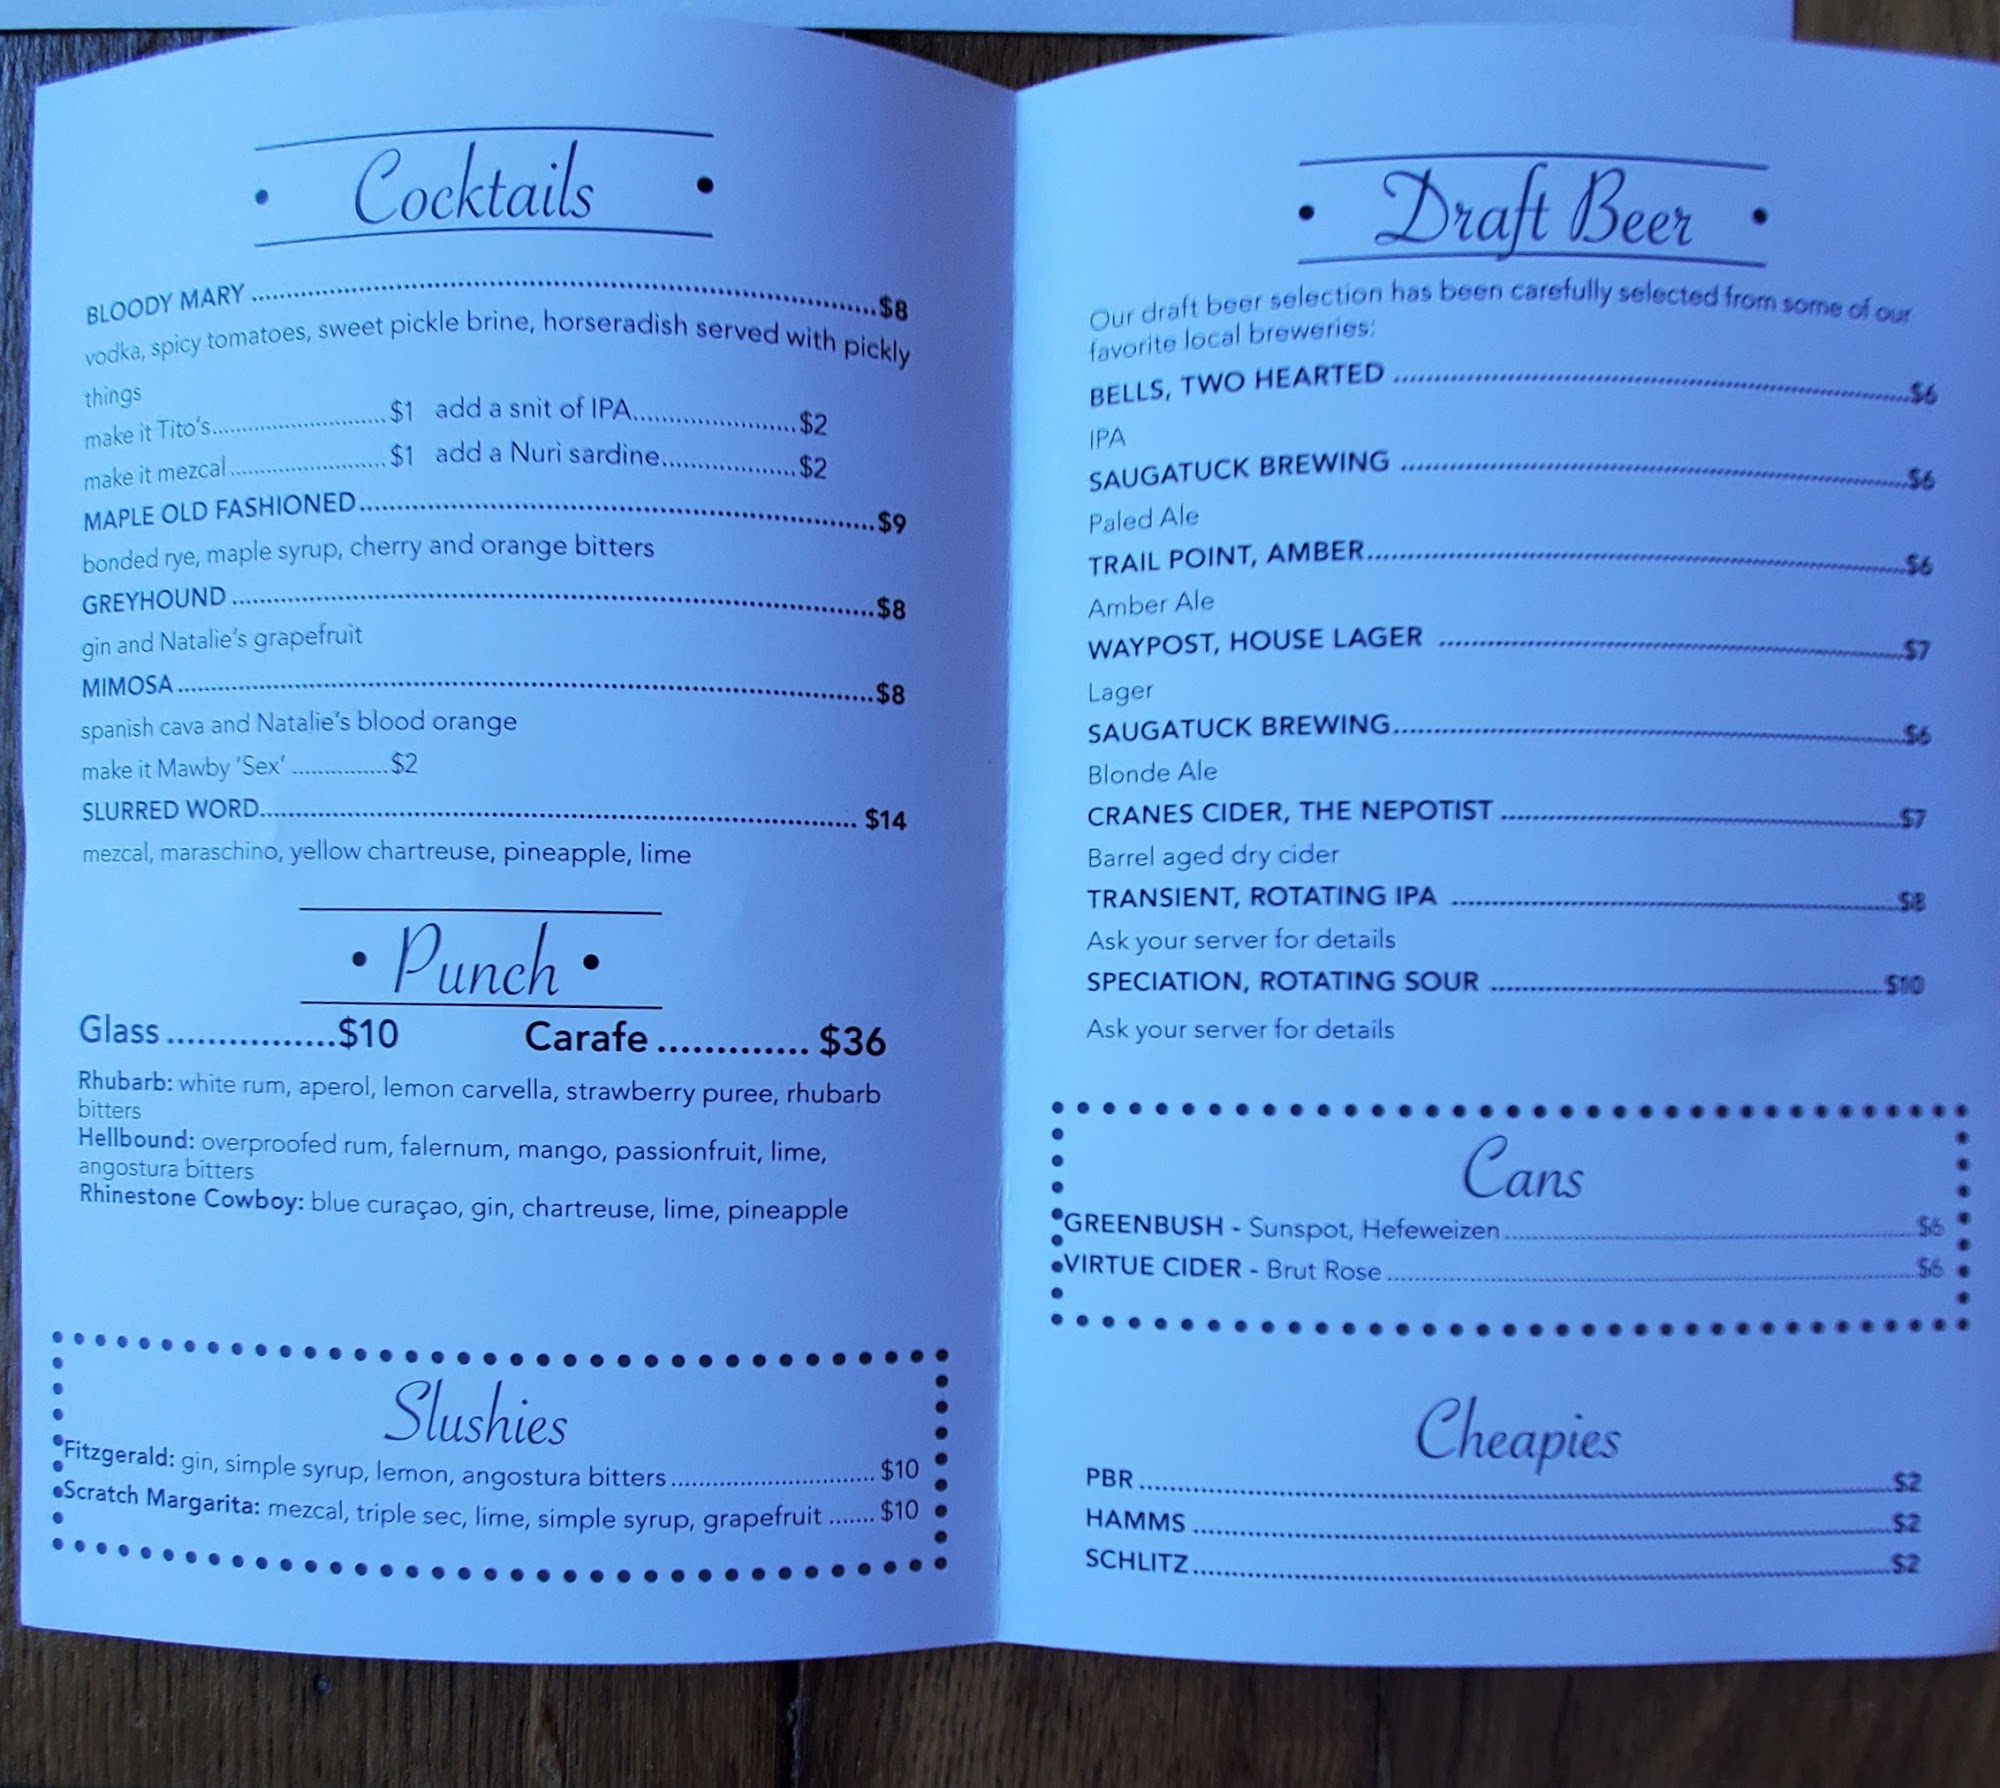 Cocktails
BLOODY MARY ........ $8
vodka, spicy tomatoes, sweet pickle brine, horseradish served with pickly
things
make it Tito's ........ $1 add a snit of IPA ........ $2
make it mezcal ........ $1 add a Nuri sardine ........ $2
MAPLE OLD FASHIONED ........ $9
bonded rye, maple syrup, cherry and orange bitters
GREYHOUND ........ $8
gin and Natalie's grapefruit
MIMOSA ........ $8
spanish cava and Natalie's blood orange
make it Mawby 'Sex' ........ $2
SLURRED WORD ........ $14
mezcal, maraschino, yellow chartreuse, pineapple, lime
Punch
Glass ........ $10 Carafe ........ $36
Rhubarb: white rum, aperol, lemon carvella, strawberry puree, rhubarb
bitters
Hellbound: overproofed rum, falernum, mango, passionfruit, lime,
angostura bitters
Rhinestone Cowboy: blue curaçao, gin, chartreuse, lime, pineapple
Slushies
Fitzgerald: gin, simple syrup, lemon, angostura bitters ........ $10
Scratch Margarita: mezcal, triple sec, lime, simple syrup, grapefruit ....... $10
Draft Beer
Our draft beer selection has been carefully selected from some of our
favorite local breweries:
BELLS, TWO HEARTED ........ $6
IPA
SAUGATUCK BREWING ........ $6
Paled Ale
TRAIL POINT, AMBER ........ $6
Amber Ale
WAYPOST, HOUSE LAGER ........ $7
Lager
SAUGATUCK BREWING ........ $6
Blonde Ale
CRANES CIDER, THE NEPOTIST ........ $7
Barrel aged dry cider
TRANSIENT, ROTATING IPA ........ $8
Ask your server for details
SPECIATION, ROTATING SOUR ........ $10
Ask your server for details
Cans
GREENBUSH - Sunspot, Hefeweizen ........ $6
VIRTUE CIDER - Brut Rose ........ $6
Cheapies
PBR ........ $2
HAMMS ........ $2
SCHLITZ ........ $2